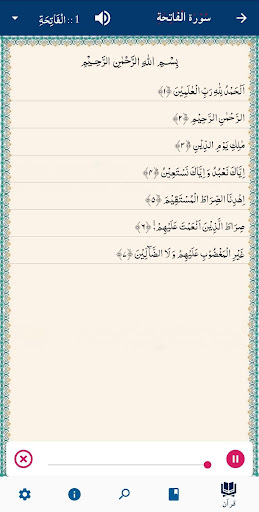 سورة الفاتحة
1 :: الْفَاتِحَةِ
بِسْمِ اللهِ الرَّحْمٰنِ الرَّحِيْمِ
اَلْحَمْدُ لِلّٰهِ رَبِّ الْعٰلَمِيْنَ ﴿۱﴾
الرَّحْمٰنِ الرَّحِيْمِ ﴿۲﴾
مٰلِكِ يَوْمِ الدِّيْنِ ﴿۳﴾
اِيَّاكَ نَعْبُدُ وَ اِيَّاكَ نَسْتَعِيْنُ ﴿۴﴾
اِهْدِنَا الصِّرَاطَ الْمُسْتَقِيْمَ ﴿۵﴾
صِرَاطَ الَّذِيْنَ اَنْعَمْتَ عَلَيْهِمْ ﴿۶﴾
غَيْرِ الْمَغْضُوْبِ عَلَيْهِمْ وَ لَا الضَّآلِّيْنَ ﴿۷﴾
قرآن